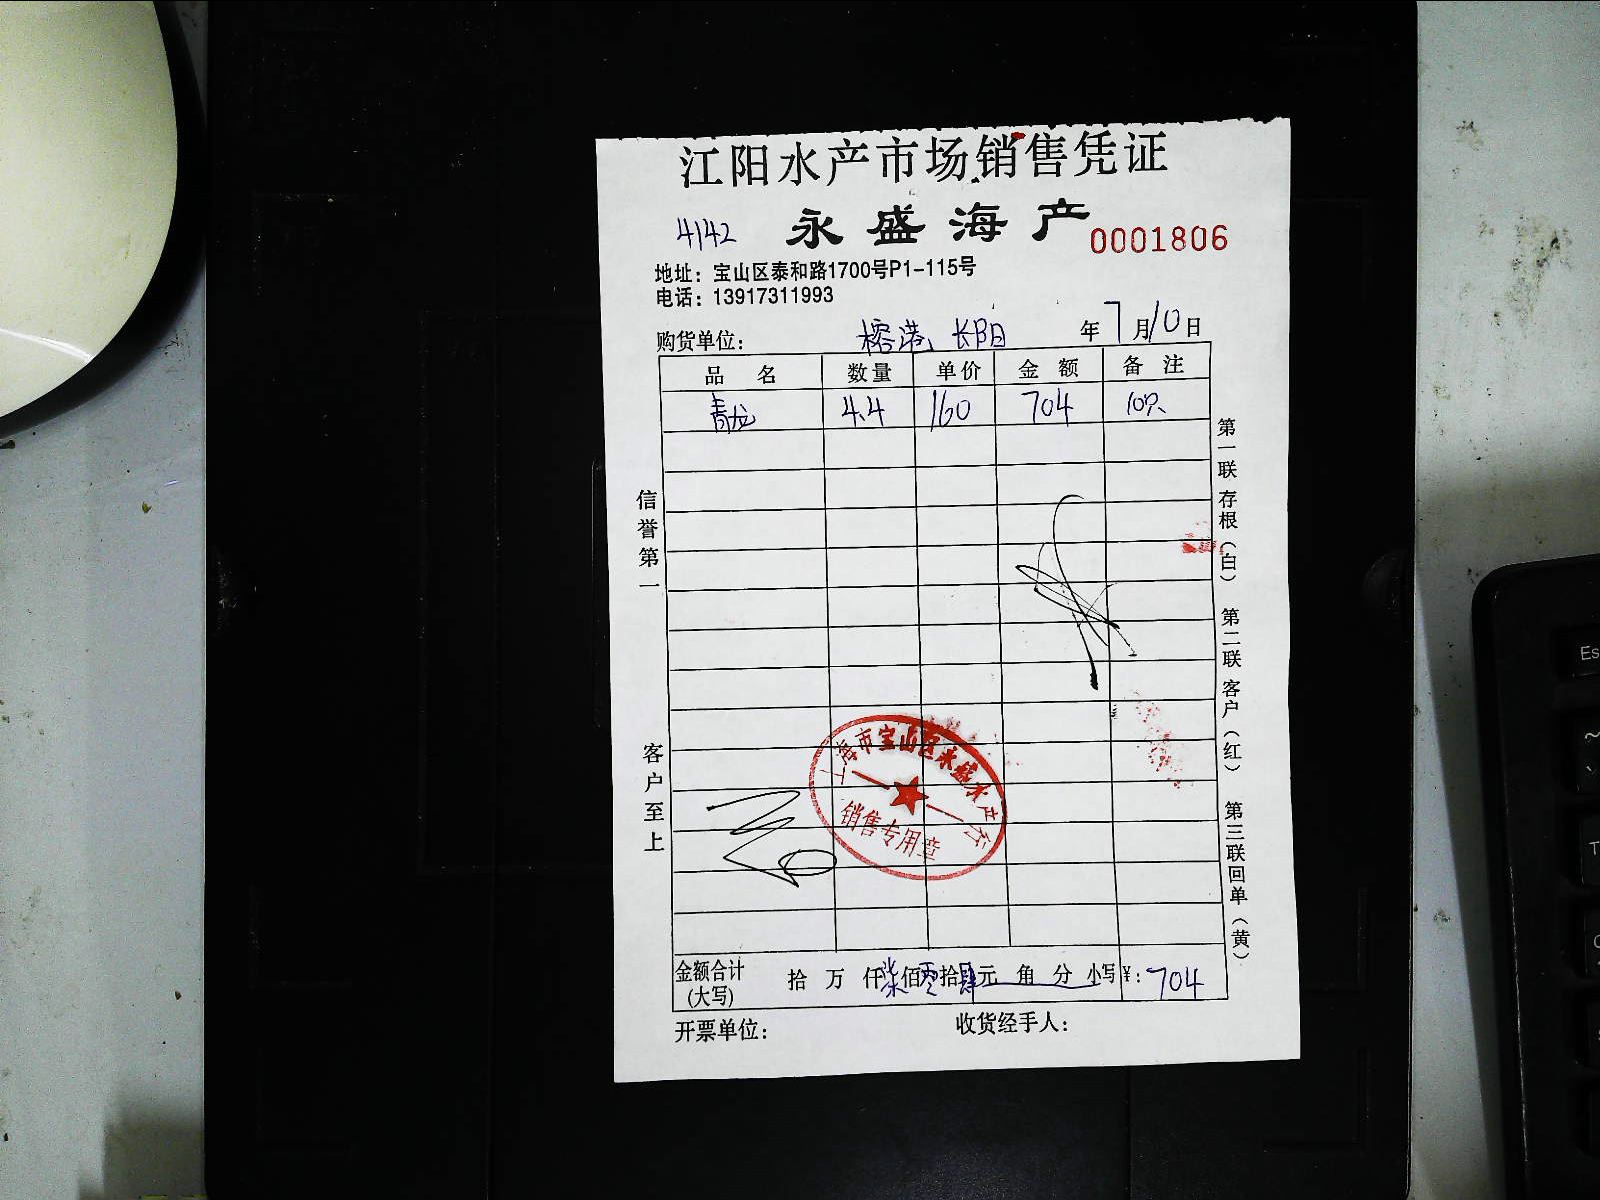 江阳水产市场销售凭证
4142 永盛海产 0001806
地址：宝山区泰和路1700号P1-115号
电话：13917311993
购货单位： 榕港、长阳 年7月10日
品名 数量 单价 金额 备注
青龙 4.4 160 704 10只
信誉第一
客户至上
第一联存根（白） 第二联客户（红） 第三联回单（黄）
上海市宝山区永盛水产行
销售专用章
金额合计 拾 万 仟柒佰零拾肆元 角 分 小写¥：704
(大写)
开票单位： 收货经手人：
Es